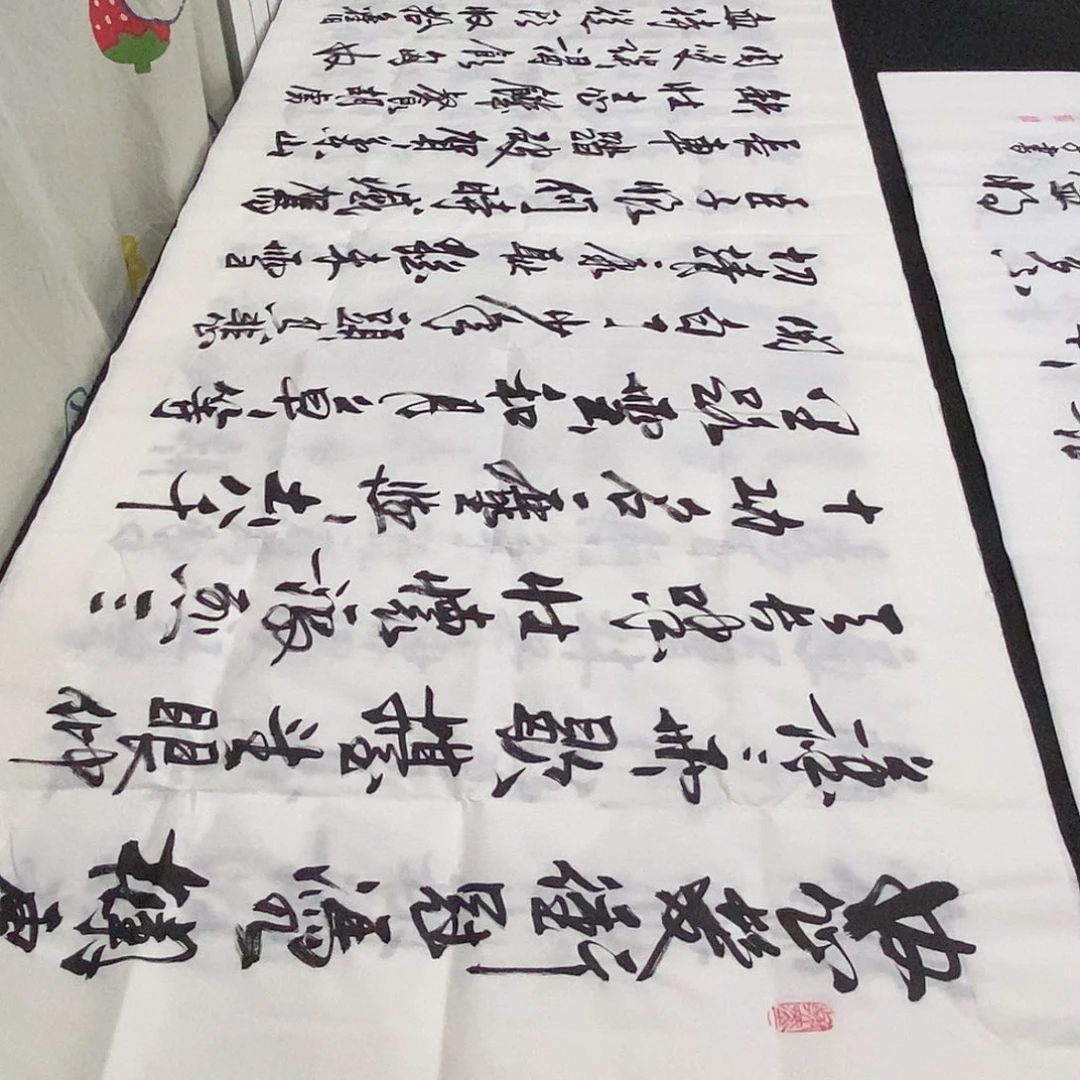 怒髮衝冠憑欄處
瀟瀟雨歇擡望眼仰
天長嘯壯懷激烈三
十功名塵與土八千
里路雲和月莫等
閒白了少年頭空悲
切靖康恥猶未雪
臣子恨何時滅駕
長車踏破賀蘭山
缺壯志飢餐胡虜
肉笑談渴飲匈奴
血待從頭收拾舊